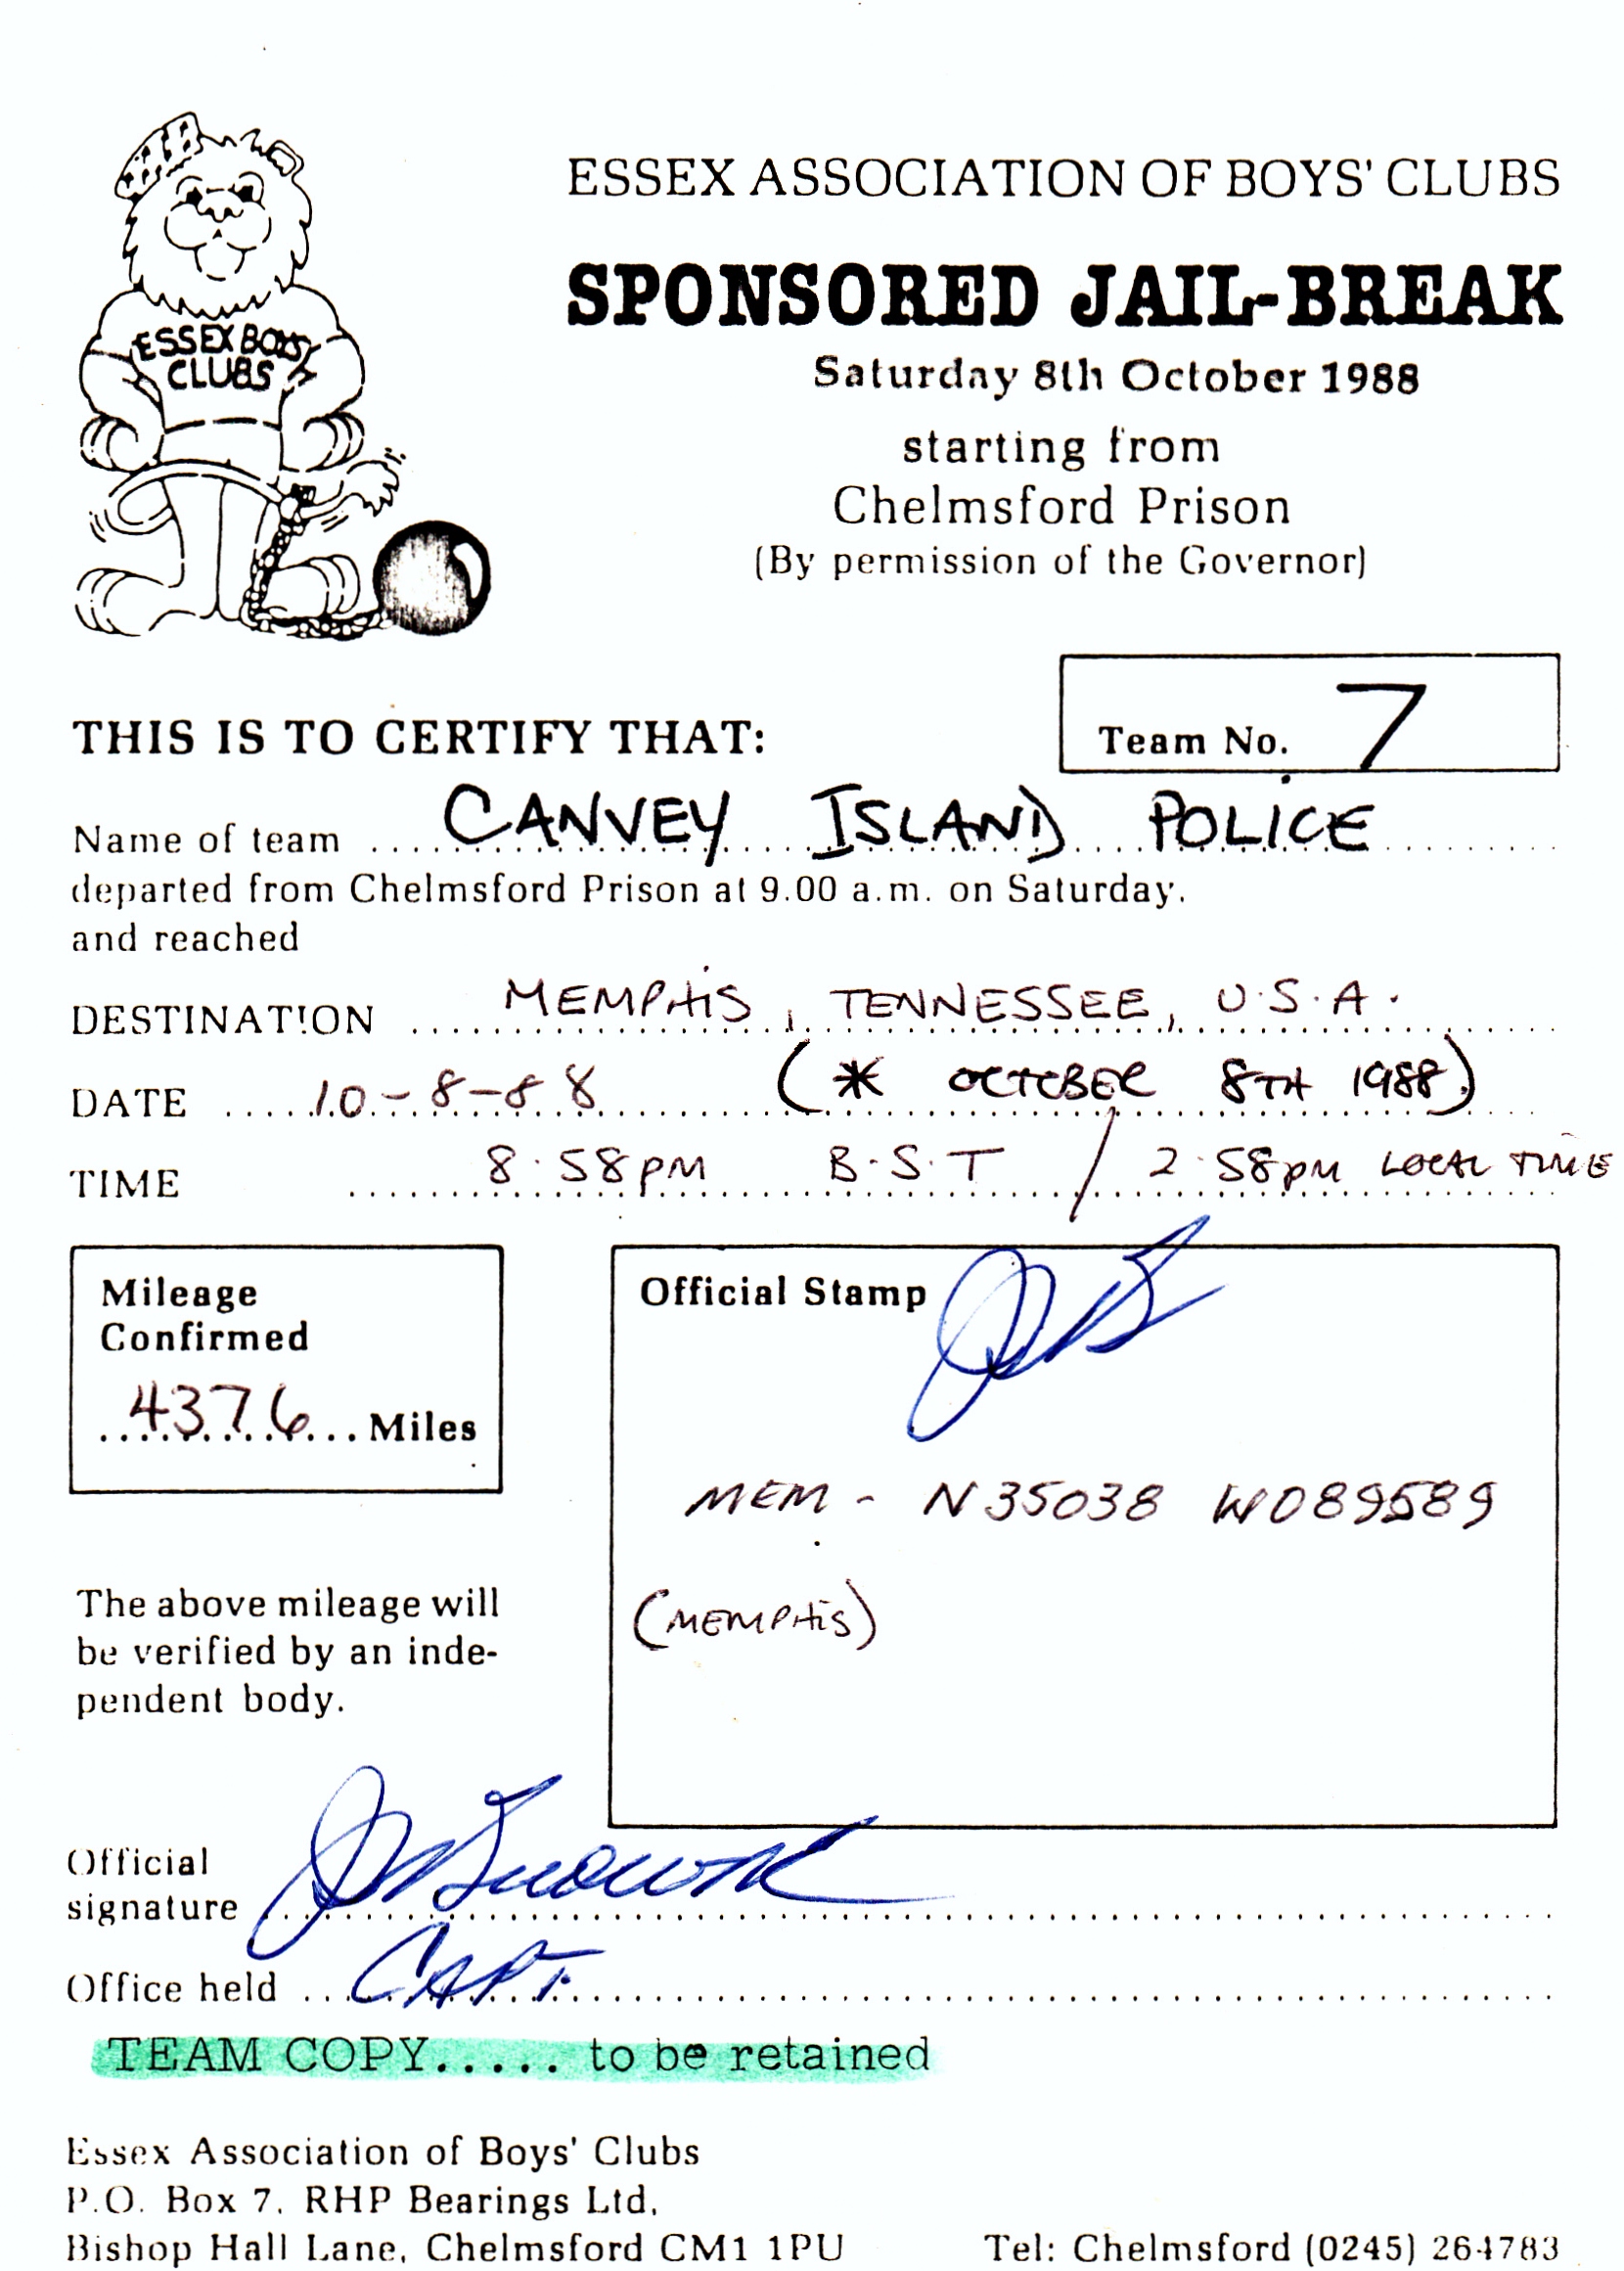 ESSEX BOYS
CLUBS
ESSEX ASSOCIATION OF BOYS' CLUBS
SPONSORED JAIL-BREAK
Saturday 8th October 1988
starting from
Chelmsford Prison
(By permission of the Governor)
Team No. 7
THIS IS TO CERTIFY THAT:
Name of team CANVEY ISLAND POLICE
departed from Chelmsford Prison at 9.00 a.m. on Saturday.
and reached
DESTINATION MEMPHIS, TENNESSEE, U.S.A.
DATE 10-8-88 (* OCTOBER 8TH 1988)
TIME 8.58PM B.S.T / 2.58PM LOCAL TIME
Mileage
Confirmed
4376 Miles
Official Stamp
MEM - N35038 W089589
(MEMPHIS)
The above mileage will
be verified by an inde-
pendent body.
Official
signature
Office held CAPT.
TEAM COPY..... to be retained
Essex Association of Boys' Clubs
P.O. Box 7, RHP Bearings Ltd,
Bishop Hall Lane, Chelmsford CM1 1PU Tel: Chelmsford (0245) 264783